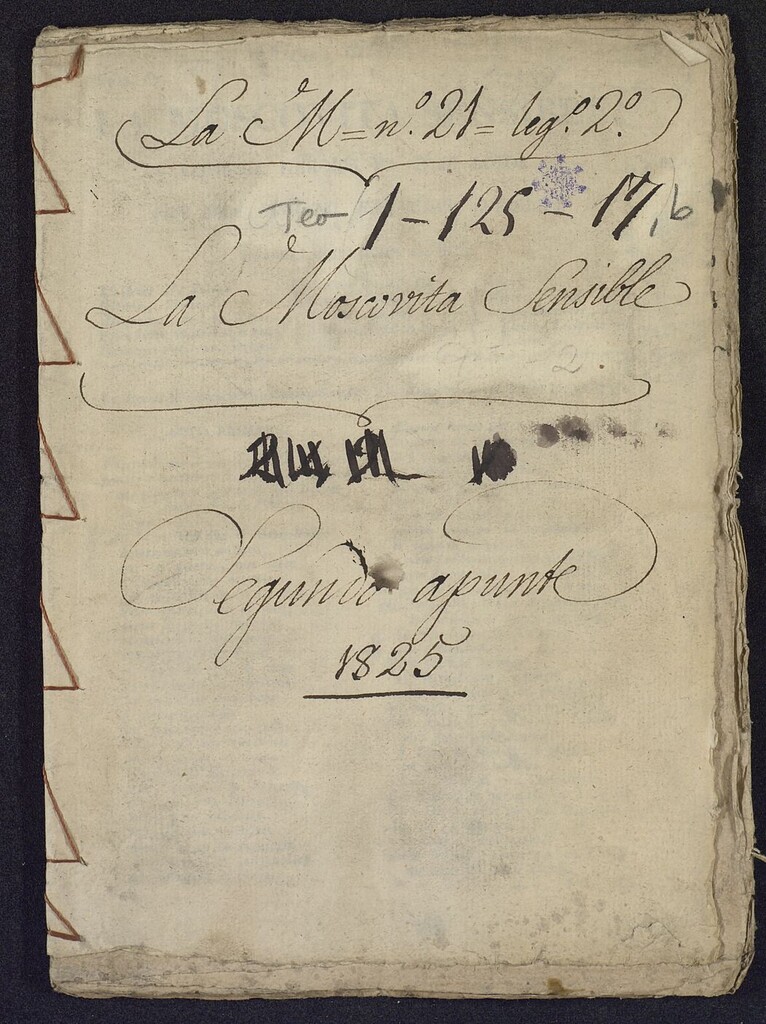 La M = nº. 21 = legº. 2º.
Teo 1-125-17, b
La Moscovita Sensible
Segundo apunte
1825